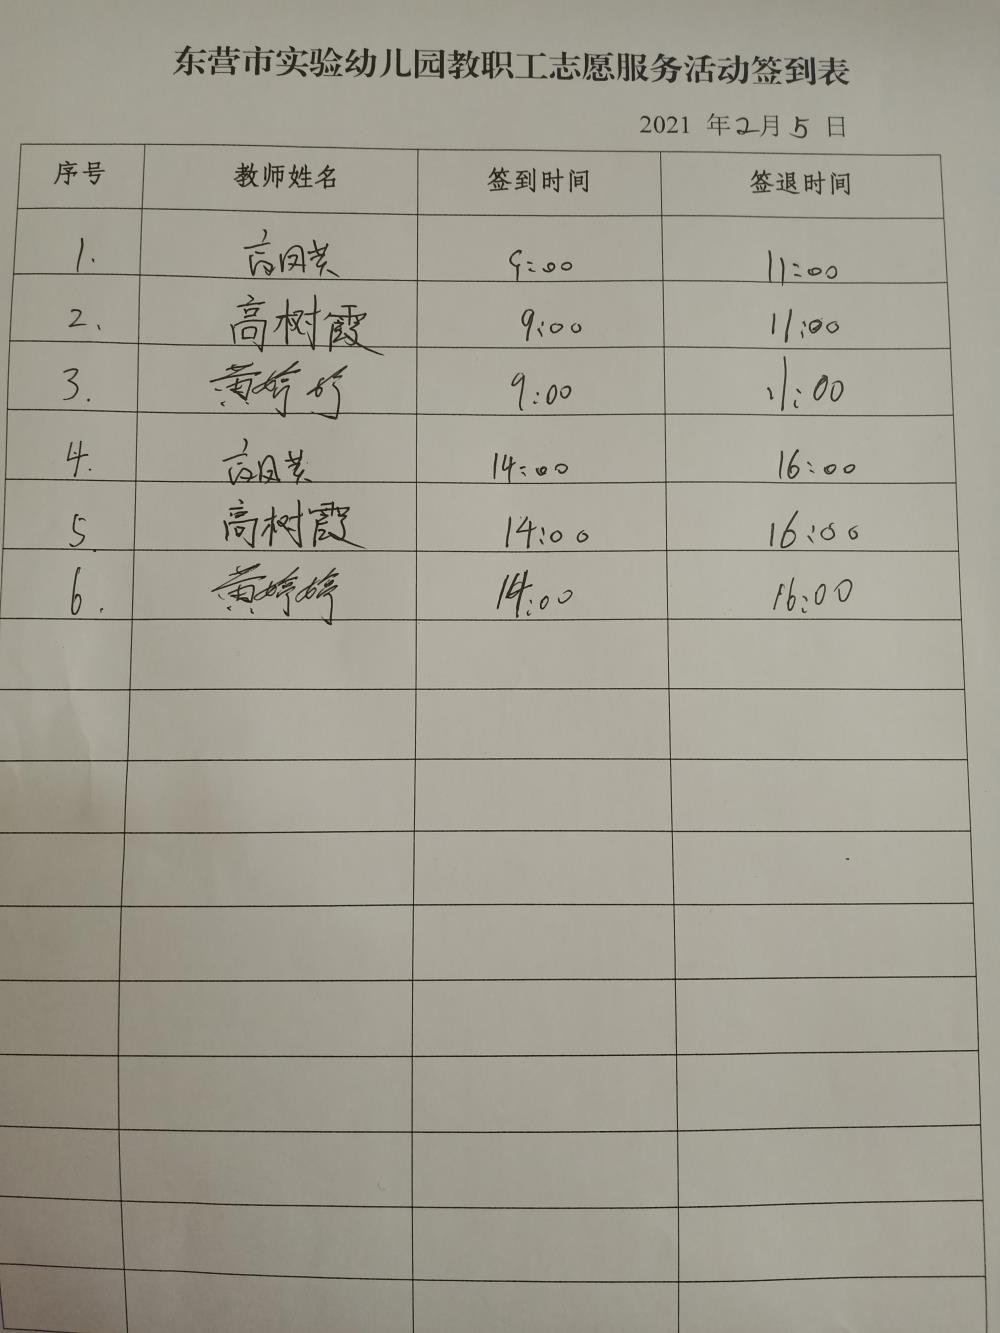 东营市实验幼儿园教职工志愿服务活动签到表
2021 年2月5日
序号 教师姓名 签到时间 签退时间
1. 高凤英 9:00 11:00
2. 高树霞 9:00 11:00
3. 黄婷婷 9:00 11:00
4. 高凤英 14:00 16:00
5 高树霞 14:00 16:00
6. 黄婷婷 14:00 16:00